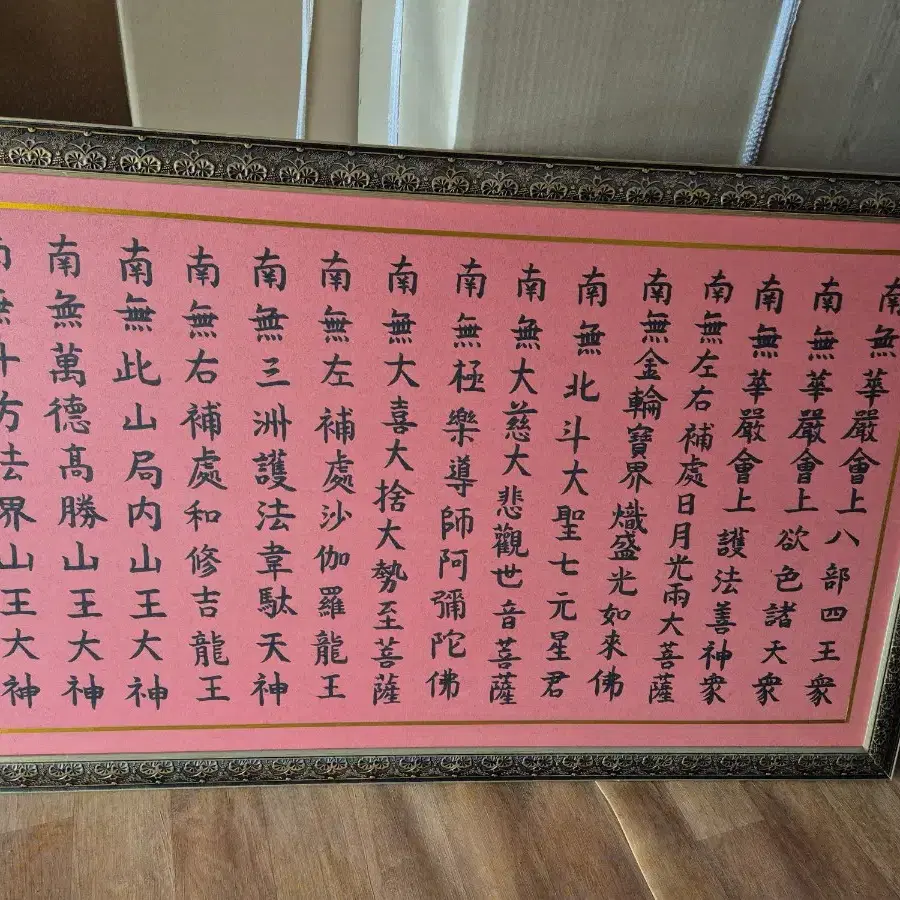 南無華嚴會上八部四王衆
南無華嚴會上欲色諸天衆
南無華嚴會上護法善神衆
南無左右補處日月光兩大菩薩
南無金輪寶界熾盛光如來佛
南無北斗大聖七元星君
南無大慈大悲觀世音菩薩
南無極樂導師阿彌陀佛
南無大喜大捨大勢至菩薩
南無左補處沙伽羅龍王
南無三洲護法韋駄天神
南無右補處和修吉龍王
南無此山局内山王大神
南無萬德髙勝山王大神
南無十方法界山王大神